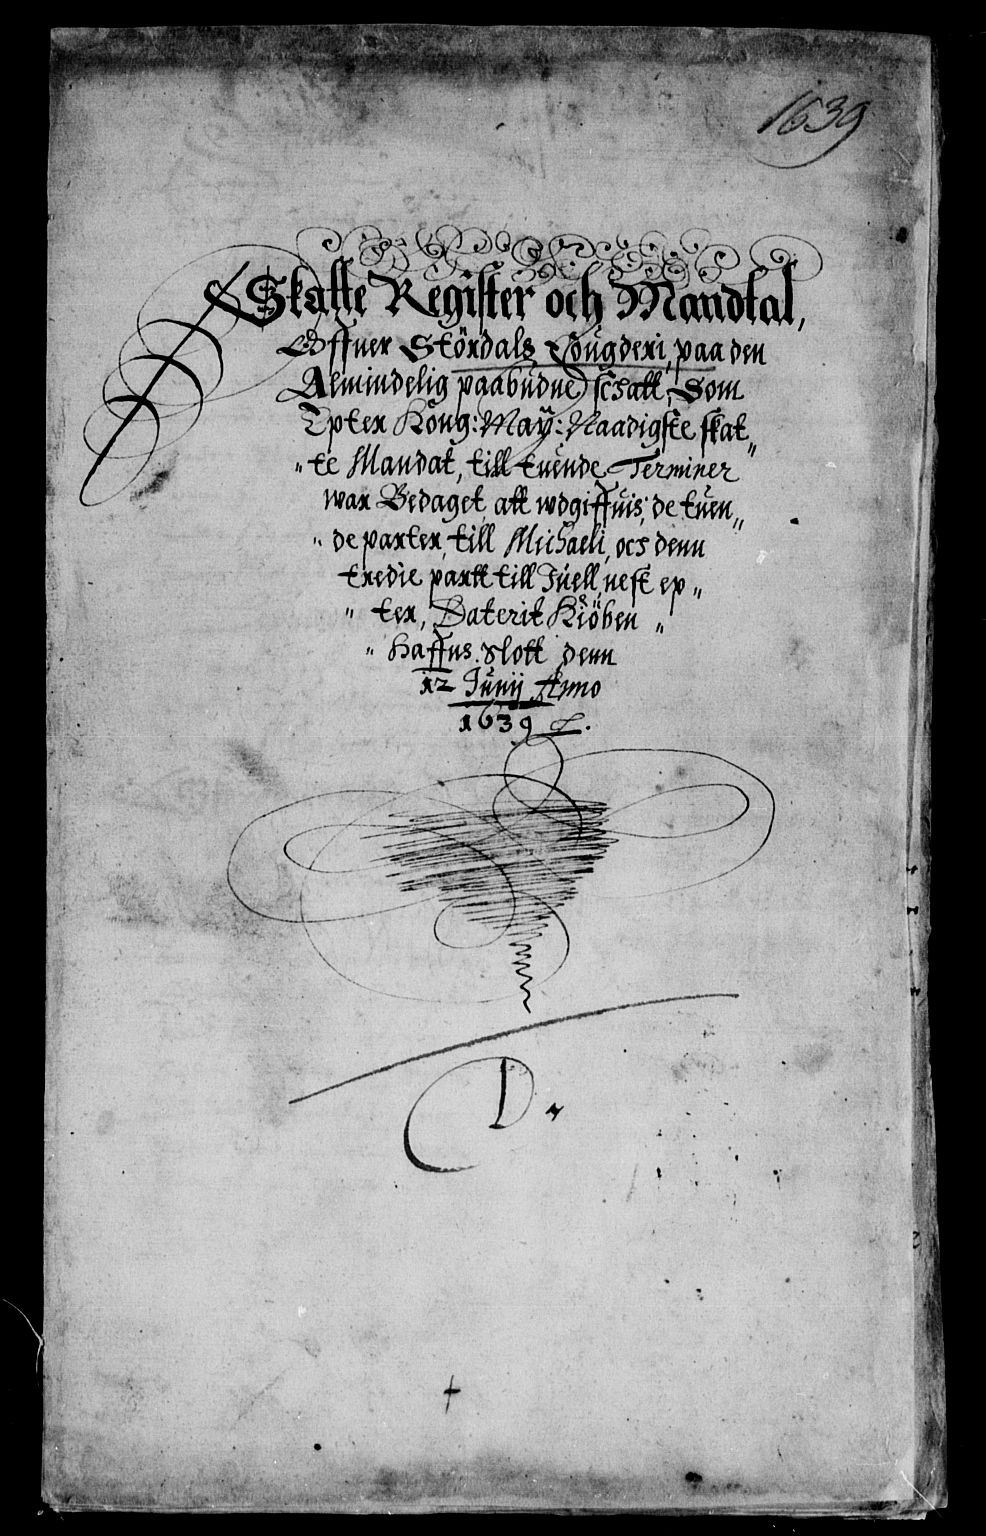 1639
Skatte Register och Mandtal,
Offuer Stördals Fougderi, paa den
Almindelig paabudne schatt, Som
Epter Kong: May: Naadigste skat„
„te Mandat, till tuende Terminer
war Bedaget, att wdgiffuis, de tuen„
„de parter, till Michaeli, och denn
tredie partt till Juell, nest ep„
„ter, Daterit Kiöben„
„Haffns Slott denn
12 Junij Anno
1639
D